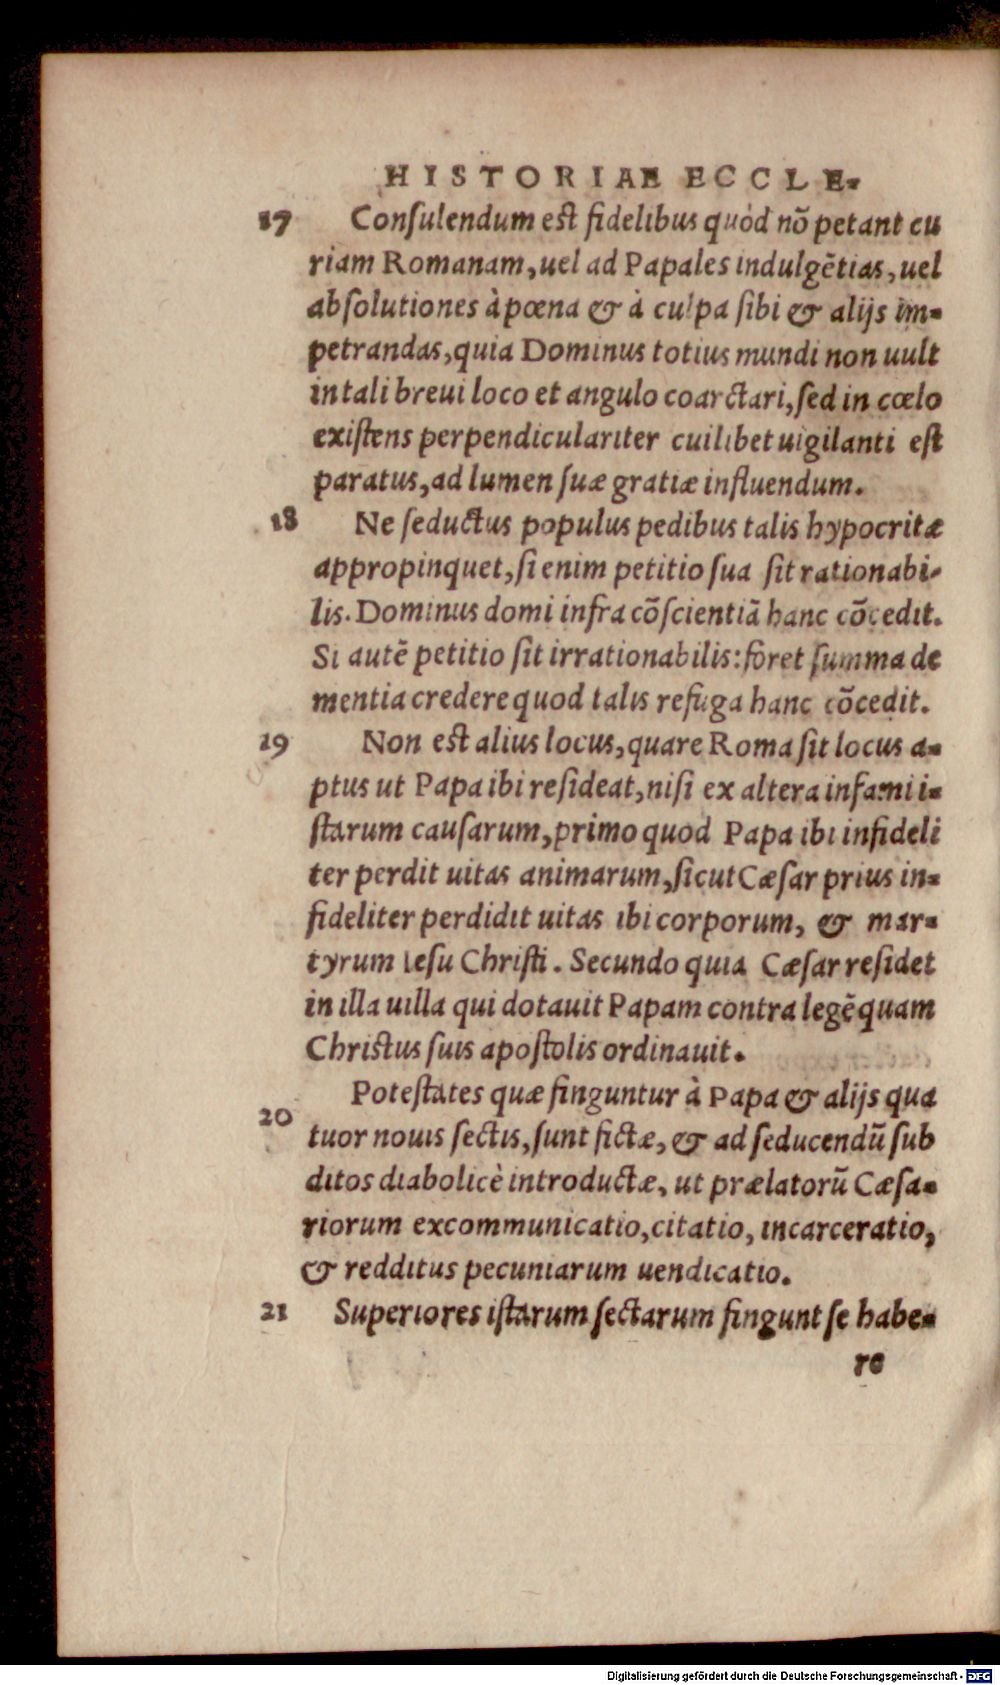 HISTORIAE ECCLE-
17 Conſulendum eſt fidelibus quòd nō petant cu
riam Romanam, uel ad Papales indulgētias, uel
abſolutiones à pœna & à culpa ſibi & alijs im-
petrandas, quia Dominus totius mundi non uult
in tali breui loco et angulo coarctari, ſed in cœlo
exiſtens perpendiculariter cuilibet uigilanti eſt
paratus, ad lumen ſuæ gratiæ influendum.
18 Ne ſeductus populus pedibus talis hypocritæ
appropinquet, ſi enim petitio ſua ſit rationabi-
lis. Dominus domi infra cōſcientiā hanc cōcedit.
Si autē petitio ſit irrationabilis: foret ſumma de
mentia credere quod talis refuga hanc cōcedit.
19 Non eſt alius locus, quare Roma ſit locus a-
ptus ut Papa ibi reſideat, niſi ex altera infami i-
ſtarum cauſarum, primo quod Papa ibi infideli
ter perdit uitas animarum, ſicut Cæſar prius in-
fideliter perdidit uitas ibi corporum, & mar-
tyrum Ieſu Chriſti. Secundo quia Cæſar reſidet
in illa uilla qui dotauit Papam contra legē quam
Chriſtus ſuis apoſtolis ordinauit.
20 Poteſtates quæ finguntur à Papa & alijs qua
tuor nouis ſectis, ſunt fictæ, & ad ſeducendū ſub
ditos diabolicè introductæ, ut prælatorū Cæſa-
riorum excommunicatio, citatio, incarceratio,
& redditus pecuniarum uendicatio.
21 Superiores iſtarum ſectarum fingunt ſe habe-
re
Digitalisierung gefördert durch die Deutsche Forschungsgemeinschaft - DFG